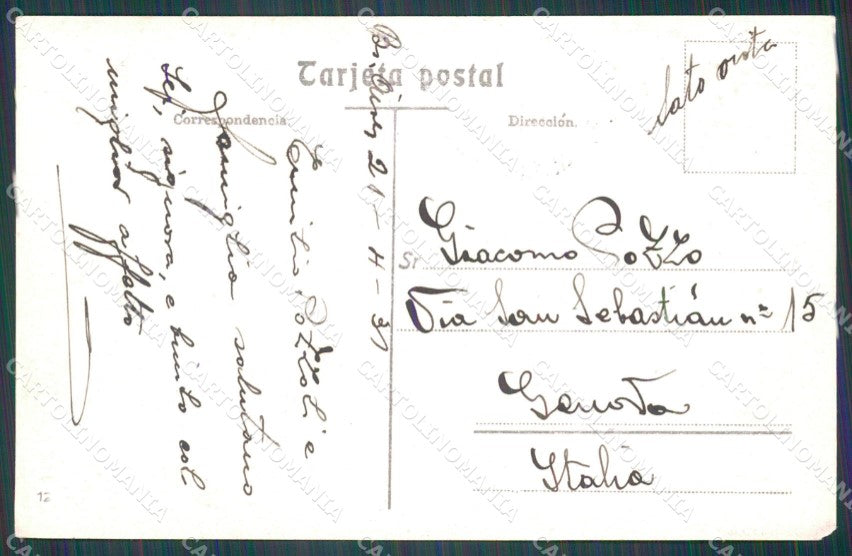 Tarjeta postal
Correspondencia
Dirección.
lato vista
Bs. Aires 21-4-31
Emilio Pozzoli e
famiglia salutano
Lei, signora, e bimbo col
miglior affetto
Sr. Giacomo Pozzo
Via San Sebastián nº 15
Genova
Italia
12
CARTOLINOMANIA